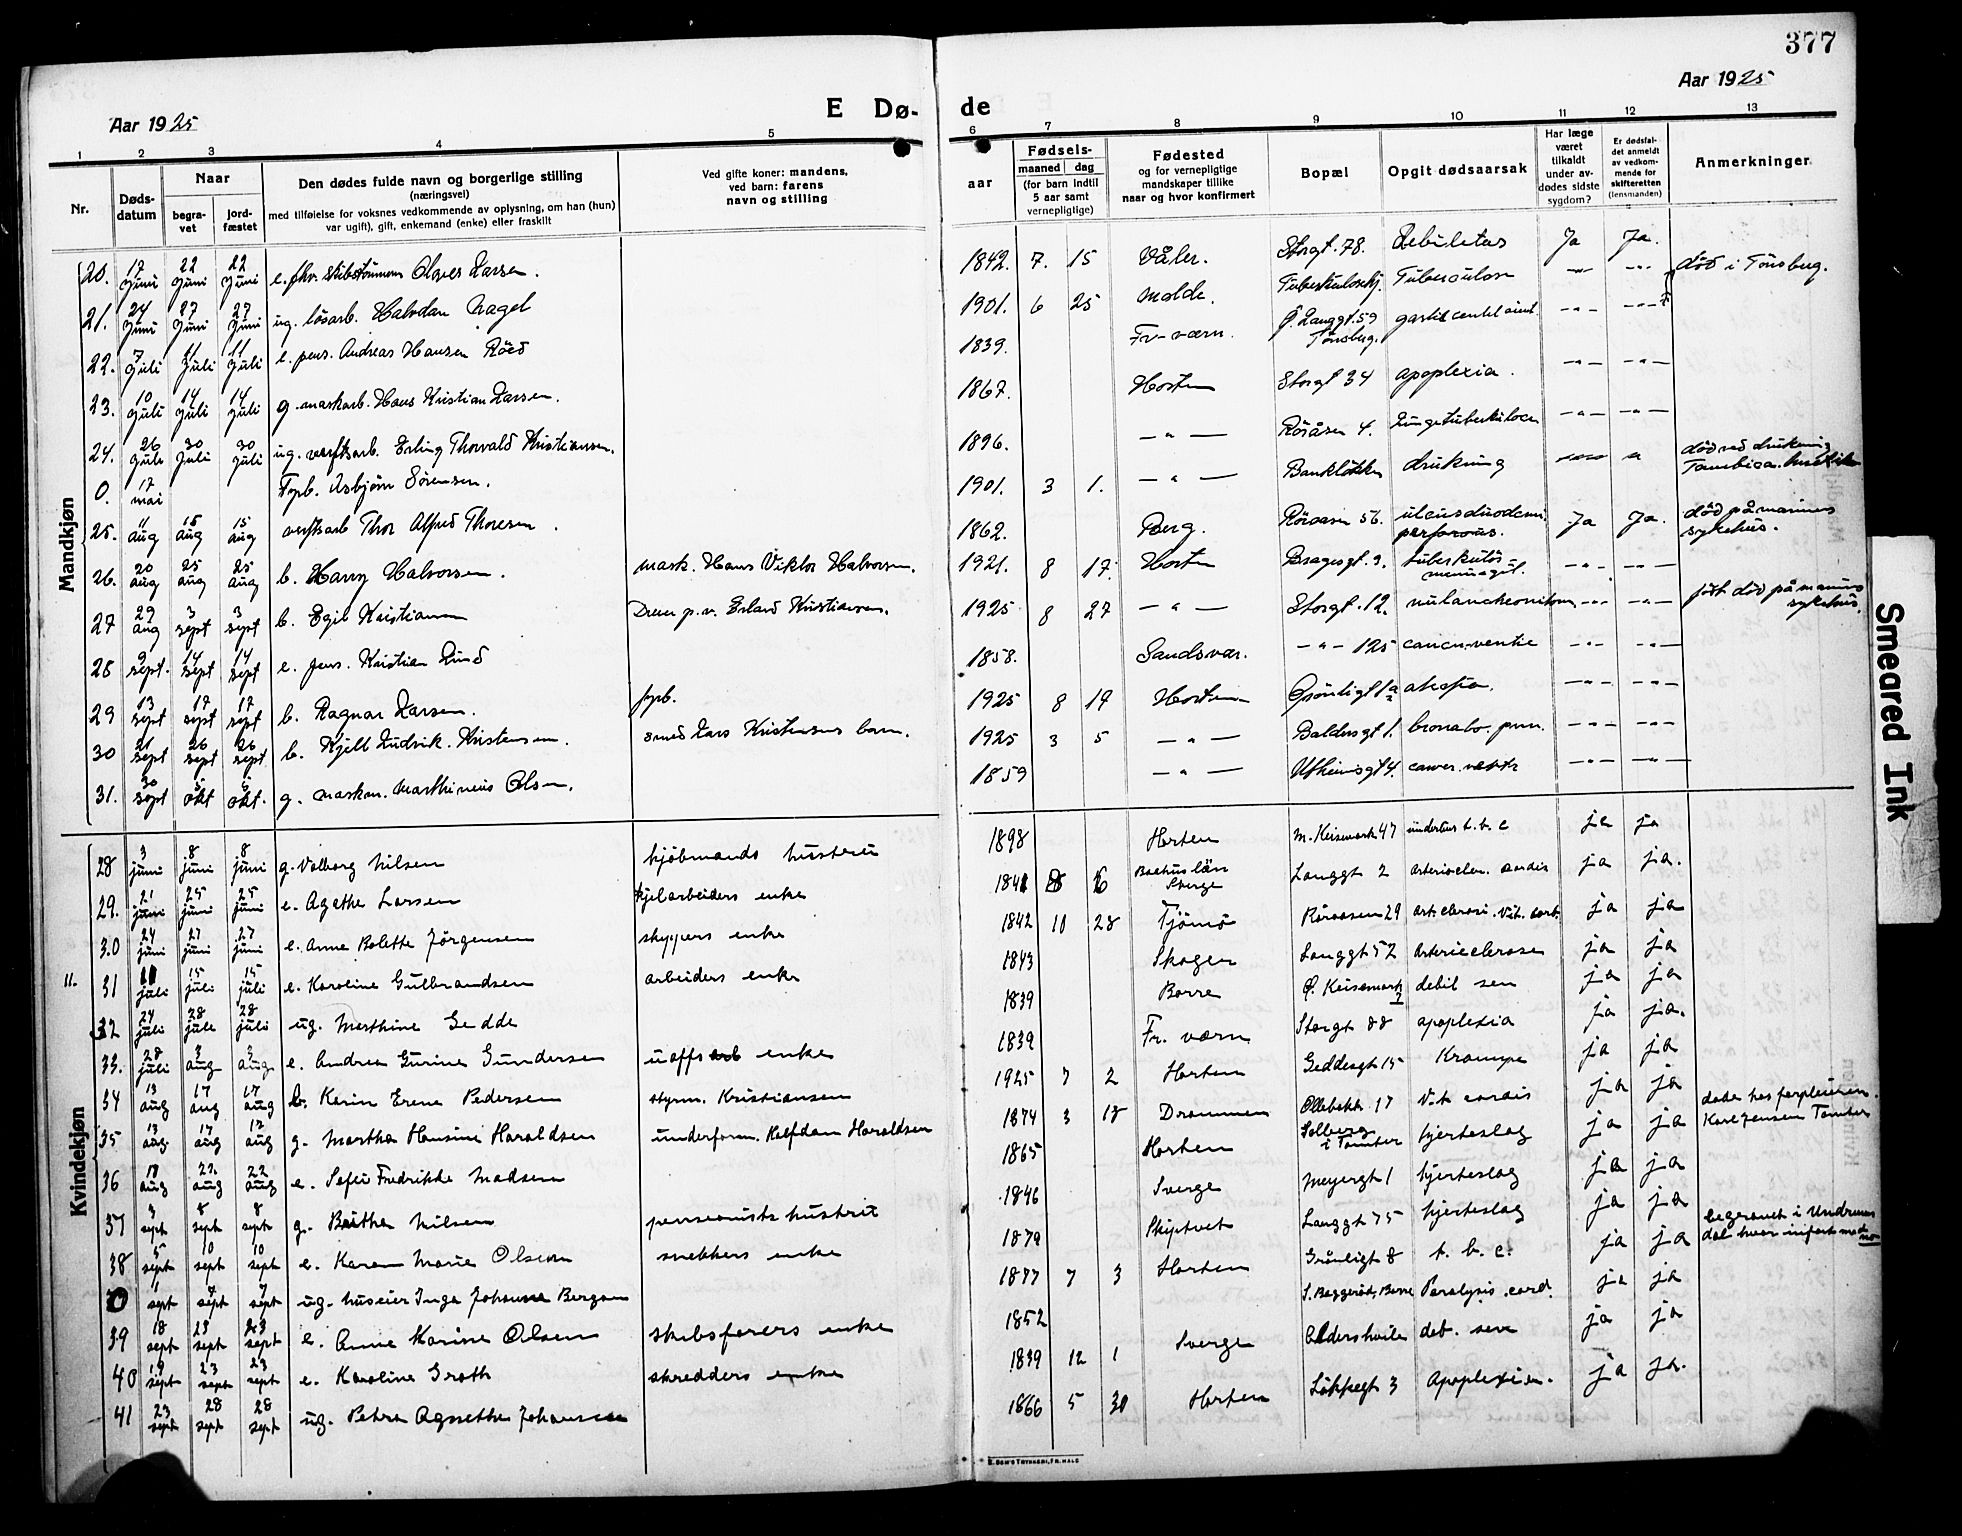 377
Aar 1925
Aar 1925
E Dø-
de
1 2 3 4 5 6 7 8 9 10 11 12 13
Nr.
Døds-
datum
Naar
begra-
vet
jord-
fæstet
Den dødes fulde navn og borgerlige stilling
(næringsvei)
med tilføielse for voksnes vedkommende av oplysning, om han (hun)
var ugift), gift, enkemand (enke) eller fraskilt
Ved gifte koner: mandens,
ved barn: farens
navn og stilling
aar
Fødsels-
maaned dag
(for barn indtil
5 aar samt
vernepligtige)
Fødested
og for vernepligtige
mandskaper tillike
naar og hvor konfirmert
Bopæl
Opgit dødsaarsak
Har læge
været
tilkaldt
under av-
dødes sidste
sygdom?
Er dødsfal-
det anmeldt
av vedkom-
mende for
skifteretten
(lensmanden)
Anmerkninger
Mandkjøn
20. 17 juni 22 juni 22 juni e. Larsen. 1842. 7. 15 Våler. Storgt. 78. Debilitas Ja Ja.
21. 24 juni 27 juni 27 juni ug. løsarb. Halvdan Nagel 1901. 6 25 Molde. Tuberculose -"- -"- død i Tønsberg.
22. 7 juli 11 juli 11 juli e. pens. Andreas Hansen Röed 1839. Fr-værn. Ø. Langgt. 59 Tønsberg. -"- -"-
23. 10 juli 14 juli 14 juli g. maskarb. Hans Kristian Larsen. 1867. Horten Storgt 34 apoplexia. -"- -"-
24. 26 juli 30 juli 30 juli ug. verftsarb. Erling Thorvald Kristiansen. 1896. -"- Röråsen 4. Lungetuberkulose -"- -"-
0. 17 mai Fspb. Asbjørn Sørensen. 1901. 3 1. -"- Bankløkken drukning død ved drukning
25. 11 aug 15 aug 15 aug verftsarb Thor Alfred Thoresen. 1862. Berg. Röraasen 56. ulcus duodeni perforans. Ja Ja. død på marinens sykehus.
26. 20 aug 25 aug 25 aug b. Harry Halvorsen. mask. Hans Viktor Halvorsen. 1921. 8 17. Horten Bragesgt. 3. tuberkuløs meningit. -"- -"-
27 29 aug 3 sept 3 sept b. Egil Kristiansen Erland Kristiansen. 1925 8 27 -"- Storgt. 12. -"- -"- født død på marinens sykehus.
28 9 sept. 14 sept 14 sept e. pens. Kristian Lund 1858. Sandsvær. -"- 125 -"- -"-
29 13 sept 17 sept 17 sept b. Ragnar Larsen. fspb. 1925 8 19 Horten Grønligt 1a -"- -"-
30 21 sept 26 sept 26 sept b. Kjell Ludvik Kristensen. smed Lars Kristensens barn. 1925 3 5 -"- Baldersgt 1. broncho. pnm. -"- -"-
31. 30 sept 5 okt 5 okt. g. maskm. Marthinius Olsen. 1859 -"- Utheimsgt 4. -"- -"-
Kvindekjøn
11.
28 3 juni 8 juni 8 juni g. Valborg Nilsen kjøbmands hustru 1898 Horten M. Keisemark 47 t. b. c ja ja
29. 21 juni 25 juni 25 juni e. Agathe Larsen kjelarbeiders enke 1841 8 6 Baahuslän Sverge Langgt 2 cordis ja ja.
30 24 juni 27 juni 27 juni e. Anne Bolette Jørgensen skippers enke 1842 10 28 Tjömö Röraasen 29 ja ja
31 11 juli 15 juli 15 juli e. Karoline Gulbrandsen arbeiders enke 1843 Skogen Langgt 52 ja ja
32 24 juli 28 juli 28 juli ug. Marthine Gedde 1839 Borre Ø. Keisemark 2 debil sen ja ja
33. 28 juli 3 aug 3 aug e. Andrea Gurine Gundersen uoffs enke 1839 Fr. værn Storgt 88 apoplexia ja ja.
34 13 aug 17 aug 17 aug b. Karin Erene Pedersen styrm. Kristiansen 1925 7 2 Horten Geddesgt 15 Krampe ja ja
35 13 aug. 17 aug 17 aug g. Martha Hansine Haraldsen underform. Halfdan Haraldsen 1874 3 18 Drammen Ollebakk 17 Vit. cordis ja ja
36 18 aug 22 aug 22 aug e. Sofie Fredrikke Madsen 1865 Horten Solberg i Tomter hjerteslag ja ja døde hos Karl Jensen Tomter
37 3 sept 8 sept 8 sept g. Beithe Nilsen pensionists hustru 1846 Sverge Meyergt 1 hjerteslag ja ja
38 5 sept 10 sept 10 sept e. Karen Marie Olsen snekkers enke 1879 Skiptvet Langgt 75 hjerteslag ja ja
0 1 sept 7 sept 7 sept ug. huseier Inga Johanne Bergan 1877 7 3 Horten Grönligt 8 t. b. c. ja ja begravet i Undrums dal hvor infört med no
39 18 sept 23 sept 23 sept e. Anne Karine Olsen skibsförers enke 1852 Borre Paralysis cord. ja ja
40 19 sept 23 sept 23 sept e. Karoline Groth skredders enke 1839 12 1 Sverge Aldershvile deb. sen ja ja
41 23 sept 28 sept 28 sept ug. Petra Agnethe Johansen 1866 5 30 Horten Lökkegt 3 Apoplexia. ja ja.
Smeared Ink